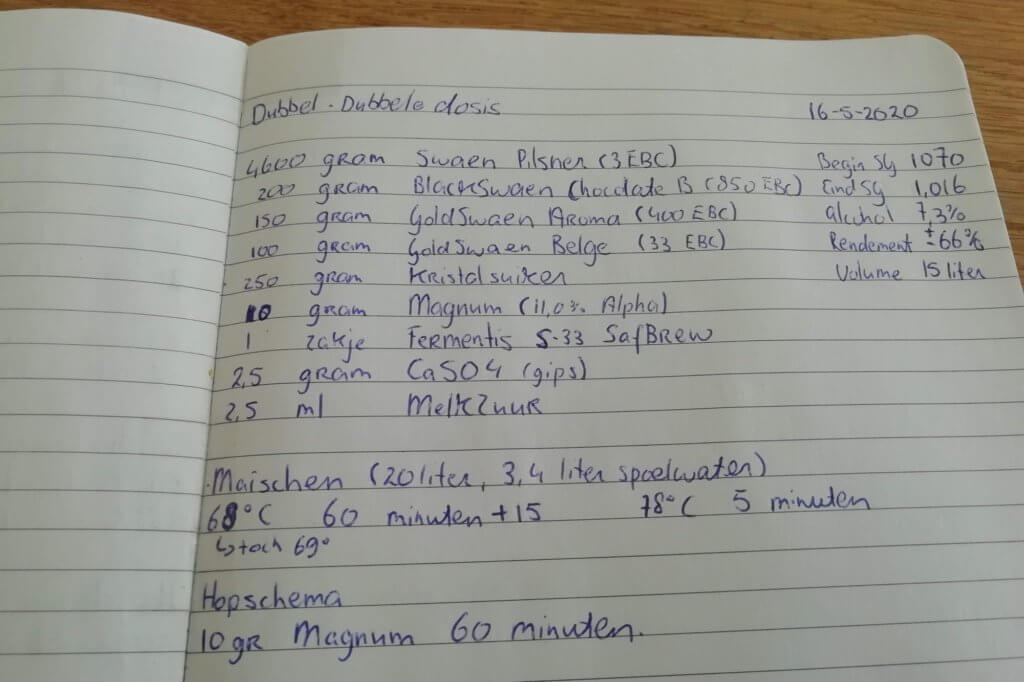 Dubbel - Dubbele dosis 16-5-2020
4600 gram Swaen Pilsner (3 EBC) Begin SG 1070
200 gram BlackSwaen Chocolate B (850 EBC) Eind SG 1,016
150 gram GoldSwaen Aroma (400 EBC) alcohol 7,3%
100 gram GoldSwaen Belge (33 EBC) Rendement ± 66%
250 gram Kristalsuiker Volume 15 liter
10 gram Magnum (11,0% Alpha)
1 zakje Fermentis S-33 SafBrew
2,5 gram CaSO4 (gips)
2,5 ml Melkzuur
Maischen (20 liter, 3,4 liter spoelwater)
68°C 60 minuten +15 78°C 5 minuten
↳ toch 69°
Hopschema
10 gr Magnum 60 minuten.